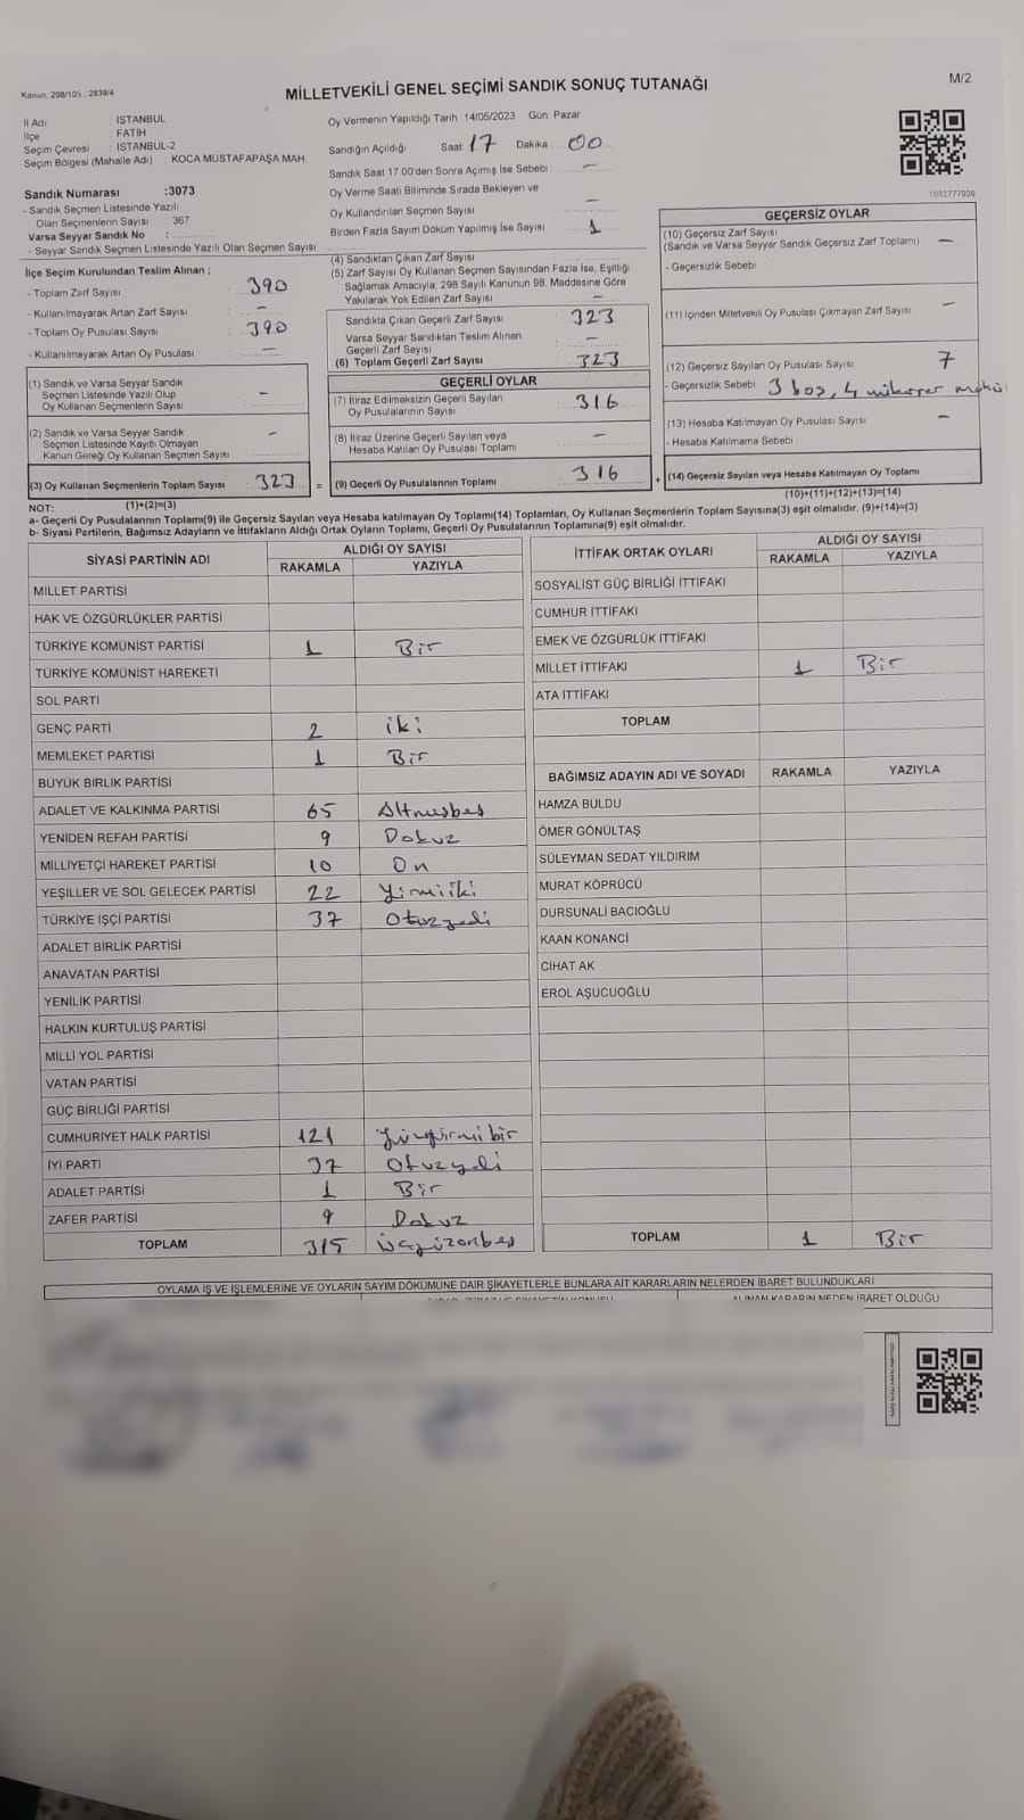 Kanun: 298/105 ; 2839/4
MİLLETVEKİLİ GENEL SEÇİMİ SANDIK SONUÇ TUTANAĞI
M/2
İl Adı : İSTANBUL
İlçe : FATİH
Seçim Çevresi : İSTANBUL-2
Seçim Bölgesi (Mahalle Adı) : KOCA MUSTAFAPAŞA MAH.
Oy Vermenin Yapıldığı Tarih 14/05/2023 Gün: Pazar
Sandığın Açıldığı Saat 17 Dakika 00
Sandık Saat 17.00'den Sonra Açılmış İse Sebebi —
Oy Verme Saati Bitiminde Sırada Bekleyen ve
Oy Kullandırılan Seçmen Sayısı —
Birden Fazla Sayım Döküm Yapılmış İse Sayısı 1
Sandık Numarası :3073
- Sandık Seçmen Listesinde Yazılı
Olan Seçmenlerin Sayısı 367
Varsa Seyyar Sandık No :
- Seyyar Sandık Seçmen Listesinde Yazılı Olan Seçmen Sayısı
İlçe Seçim Kurulundan Teslim Alınan ;
- Toplam Zarf Sayısı : 390
- Kullanılmayarak Artan Zarf Sayısı : —
- Toplam Oy Pusulası Sayısı : 390
- Kullanılmayarak Artan Oy Pusulası : —
(1) Sandık ve Varsa Seyyar Sandık
Seçmen Listesinde Yazılı Olup
Oy Kullanan Seçmenlerin Sayısı —
(2) Sandık ve Varsa Seyyar Sandık
Seçmen Listesinde Kayıtlı Olmayan
Kanun Gereği Oy Kullanan Seçmen Sayısı —
(3) Oy Kullanan Seçmenlerin Toplam Sayısı 323 =
(1)+(2)=(3)
(4) Sandıktan Çıkan Zarf Sayısı
(5) Zarf Sayısı Oy Kullanan Seçmen Sayısından Fazla İse, Eşitliği
Sağlamak Amacıyla, 298 Sayılı Kanunun 98. Maddesine Göre
Yakılarak Yok Edilen Zarf Sayısı —
Sandıkta Çıkan Geçerli Zarf Sayısı 323
Varsa Seyyar Sandıktan Teslim Alınan
Geçerli Zarf Sayısı —
(6) Toplam Geçerli Zarf Sayısı 323
GEÇERLİ OYLAR
(7) İtiraz Edilmeksizin Geçerli Sayılan
Oy Pusulalarının Sayısı 316
(8) İtiraz Üzerine Geçerli Sayılan veya
Hesaba Katılan Oy Pusulası Toplamı —
(9) Geçerli Oy Pusulalarının Toplamı 316 +
GEÇERSİZ OYLAR
(10) Geçersiz Zarf Sayısı
(Sandık ve Varsa Seyyar Sandık Geçersiz Zarf Toplamı) —
- Geçersizlik Sebebi
(11) İçinden Milletvekili Oy Pusulası Çıkmayan Zarf Sayısı —
(12) Geçersiz Sayılan Oy Pusulası Sayısı 7
- Geçersizlik Sebebi 3 boş, 4
(13) Hesaba Katılmayan Oy Pusulası Sayısı —
- Hesaba Katılmama Sebebi
(14) Geçersiz Sayılan veya Hesaba Katılmayan Oy Toplamı
(10)+(11)+(12)+(13)=(14)
NOT:
a- Geçerli Oy Pusulalarının Toplamı(9) ile Geçersiz Sayılan veya Hesaba katılmayan Oy Toplamı(14) Toplamları, Oy Kullanan Seçmenlerin Toplam Sayısına(3) eşit olmalıdır. (9)+(14)=(3)
b- Siyasi Partilerin, Bağımsız Adayların ve İttifakların Aldığı Ortak Oyların Toplamı, Geçerli Oy Pusulalarının Toplamına(9) eşit olmalıdır.
SİYASİ PARTİNİN ADI ALDIĞI OY SAYISI
RAKAMLA YAZIYLA
MİLLET PARTİSİ
HAK VE ÖZGÜRLÜKLER PARTİSİ
TÜRKİYE KOMÜNİST PARTİSİ 1 Bir
TÜRKİYE KOMÜNİST HAREKETİ
SOL PARTİ
GENÇ PARTİ 2 iki
MEMLEKET PARTİSİ 1 Bir
BÜYÜK BİRLİK PARTİSİ
ADALET VE KALKINMA PARTİSİ 65 Altmışbeş
YENİDEN REFAH PARTİSİ 9 Dokuz
MİLLİYETÇİ HAREKET PARTİSİ 10 On
YEŞİLLER VE SOL GELECEK PARTİSİ 22 Yirmiiki
TÜRKİYE İŞÇİ PARTİSİ 37 Otuzyedi
ADALET BİRLİK PARTİSİ
ANAVATAN PARTİSİ
YENİLİK PARTİSİ
HALKIN KURTULUŞ PARTİSİ
MİLLİ YOL PARTİSİ
VATAN PARTİSİ
GÜÇ BİRLİĞİ PARTİSİ
CUMHURİYET HALK PARTİSİ 121 Yüzyirmi bir
İYİ PARTİ 37 Otuzyedi
ADALET PARTİSİ 1 Bir
ZAFER PARTİSİ 9 Dokuz
TOPLAM 315 üçyüzonbeş
İTTİFAK ORTAK OYLARI ALDIĞI OY SAYISI
RAKAMLA YAZIYLA
SOSYALİST GÜÇ BİRLİĞİ İTTİFAKI
CUMHUR İTTİFAKI
EMEK VE ÖZGÜRLÜK İTTİFAKI
MİLLET İTTİFAKI 1 Bir
ATA İTTİFAKI
TOPLAM
BAĞIMSIZ ADAYIN ADI VE SOYADI RAKAMLA YAZIYLA
HAMZA BULDU
ÖMER GÖNÜLTAŞ
SÜLEYMAN SEDAT YILDIRIM
MURAT KÖPRÜCÜ
DURSUNALİ BACIOĞLU
KAAN KONANCİ
CİHAT AK
EROL AŞUCUOĞLU
TOPLAM 1 Bir
OYLAMA İŞ VE İŞLEMLERİNE VE OYLARIN SAYIM DÖKÜMÜNE DAİR ŞİKAYETLERLE BUNLARA AİT KARARLARIN NELERDEN İBARET BULUNDUKLARI
ALINAN KARARIN NEDEN İBARET OLDUĞU